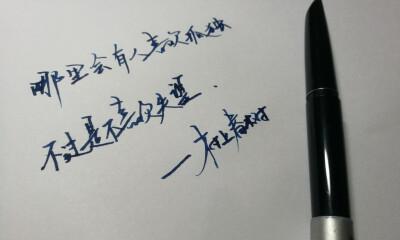 哪里会有人喜欢孤独
不过是不喜欢失望.
一村上春树